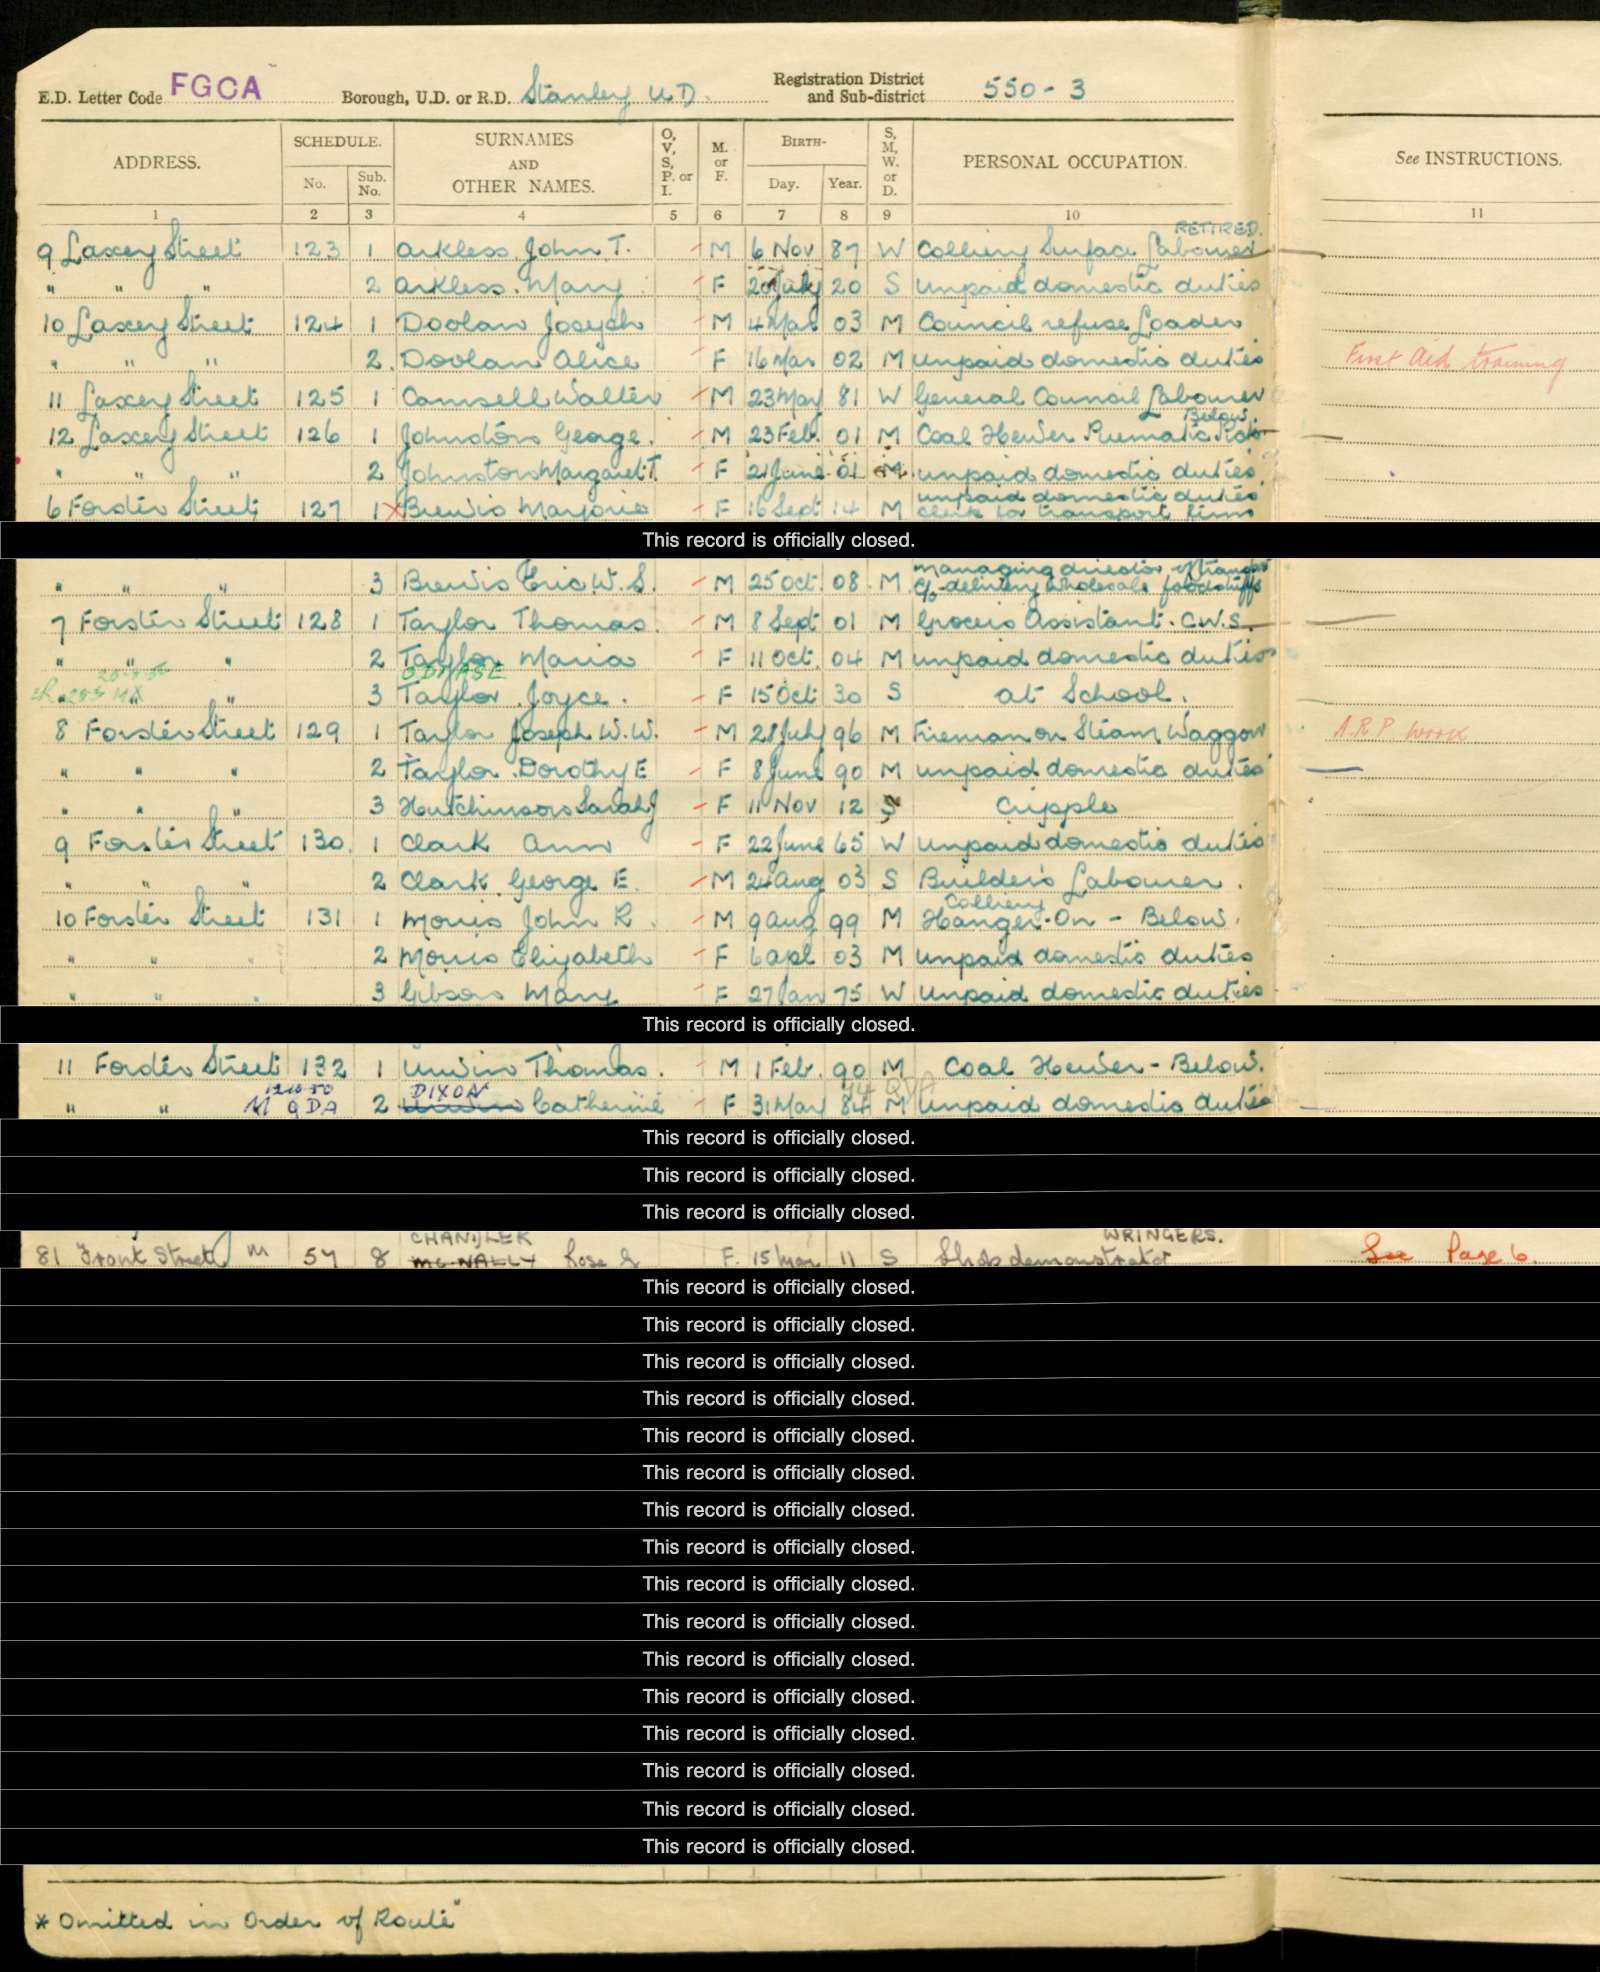 E.D. Letter Code FGCA Borough, U.D. or R.D. Stanley U.D. Registration District and Sub-district 550-3
ADDRESS. SCHEDULE. No. Sub. No. SURNAMES AND OTHER NAMES. O, V, S, P. or I. M. or F. BIRTH- Day. Year. S, M, W. or D. PERSONAL OCCUPATION. See INSTRUCTIONS.
1 2 3 4 5 6 7 8 9 10 11
RETIRED.
9 Laxey Street 123 1 Arkless John T. M 6 Nov 87 W Colliery Surface Labourer
" " " 2 Arkless. Mary F 20 July 20 S Unpaid domestic duties
10 Laxey Street 124 1 Doolan Joseph M 4 Mar 03 M Council refuse Loader
" " " 2. Doolan Alice F 16 Mar 02 M Unpaid domestic duties First Aid training
11 Laxey Street 125 1 Camsell Walter M 23 May 81 W General Council Labourer
Below
12 Laxey Street 126 1 Johnston George. M 23 Feb. 01 M Coal Hewer Pneumatic Pick
" " " 2 Johnston Margaret T. F 21 June 01 M unpaid domestic duties
unpaid domestic duties
6 Forster Street 127 1 Brewis Marjorie F 16 Sept 14 M clerk to transport firm
This record is officially closed.
managing director of
" " " 3 Brewis Eric W. S. M 25 Oct. 08 M delivery wholesale foodstuffs
7 Forster Street 128 1 Taylor Thomas. M 8 Sept 01 M Grocers Assistant. C.W.S.
" " 2 Taylor Maria F 11 Oct. 04 M unpaid domestic duties
" " 3 Taylor Joyce. F 15 Oct 30 S at School.
8 Forster Street 129 1 Taylor Joseph W.W. M 28 July 96 M Fireman on Steam Waggon A.R.P. work
" " " 2 Taylor. Dorothy E F 8 June 90 M unpaid domestic duties
" " " 3 Hutchinson Sarah J F 11 Nov 12 S Cripple
9 Forster Street 130. 1 Clark Ann F 22 June 65 W Unpaid domestic duties
" " " 2 Clark George E. M 24 Aug 03 S Builders Labourer.
Colliery
10 Forster Street 131 1 Morris John R. M 9 Aug 99 M Hanger-On - Below.
" " " 2 Morris Elizabeth F 6 Apl 03 M unpaid domestic duties
" " " 3 Gibson Mary F 27 Jan 75 W Unpaid domestic duties
This record is officially closed.
11 Forster Street 132 1 Unwin Thomas. M 1 Feb. 90 M Coal Hewer - Below.
DIXON
" " 2 Unwin Catherine F 31 May 84 M Unpaid domestic duties
This record is officially closed.
This record is officially closed.
This record is officially closed.
CHANDLER WRINGERS.
81 Front Street M 57 8 McNALLY Rose F. 15 Mar 11 S Shop demonstrator See Page 6.
This record is officially closed.
This record is officially closed.
This record is officially closed.
This record is officially closed.
This record is officially closed.
This record is officially closed.
This record is officially closed.
This record is officially closed.
This record is officially closed.
This record is officially closed.
This record is officially closed.
This record is officially closed.
This record is officially closed.
This record is officially closed.
This record is officially closed.
This record is officially closed.
* Omitted in Order of Route"